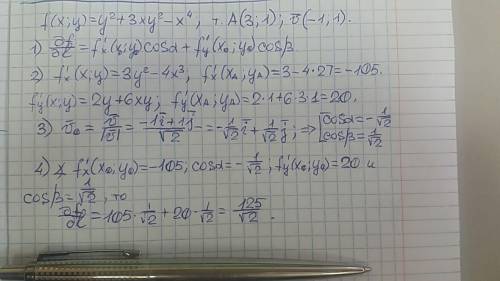 f(x;y)=y²+3xy²-x⁴, т. A(3;1); v̄(-1;1).
1) ∂f/∂l = f'x(x₀;y₀)cosα+f'y(x₀;y₀)cosβ.
2) f'x(x;y)=3y²-4x³, f'x(xA;yA)=3-4·27=-105.
f'y(x;y)=2y+6xy; f'y(xA;yA)=2·1+6·3·1=20.
3) v̄₀=v̄/|v̄|=(-1ī+1j̄)/√2=-1/√2 ī+1/√2 j̄; ⇒ [cosα=-1/√2
cosβ=1/√2
4) ∡ f'x(x₀;y₀)=-105; cosα=-1/√2, f'y(x₀;y₀)=20 и
cosβ=1/√2, то
∂f/∂l=105·1/√2+20·1/√2=125/√2.